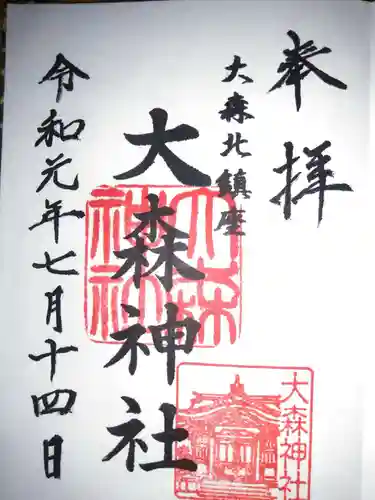 奉拝
大森北鎮座
大森神社
令和元年七月十四日
大森神社
大森神社